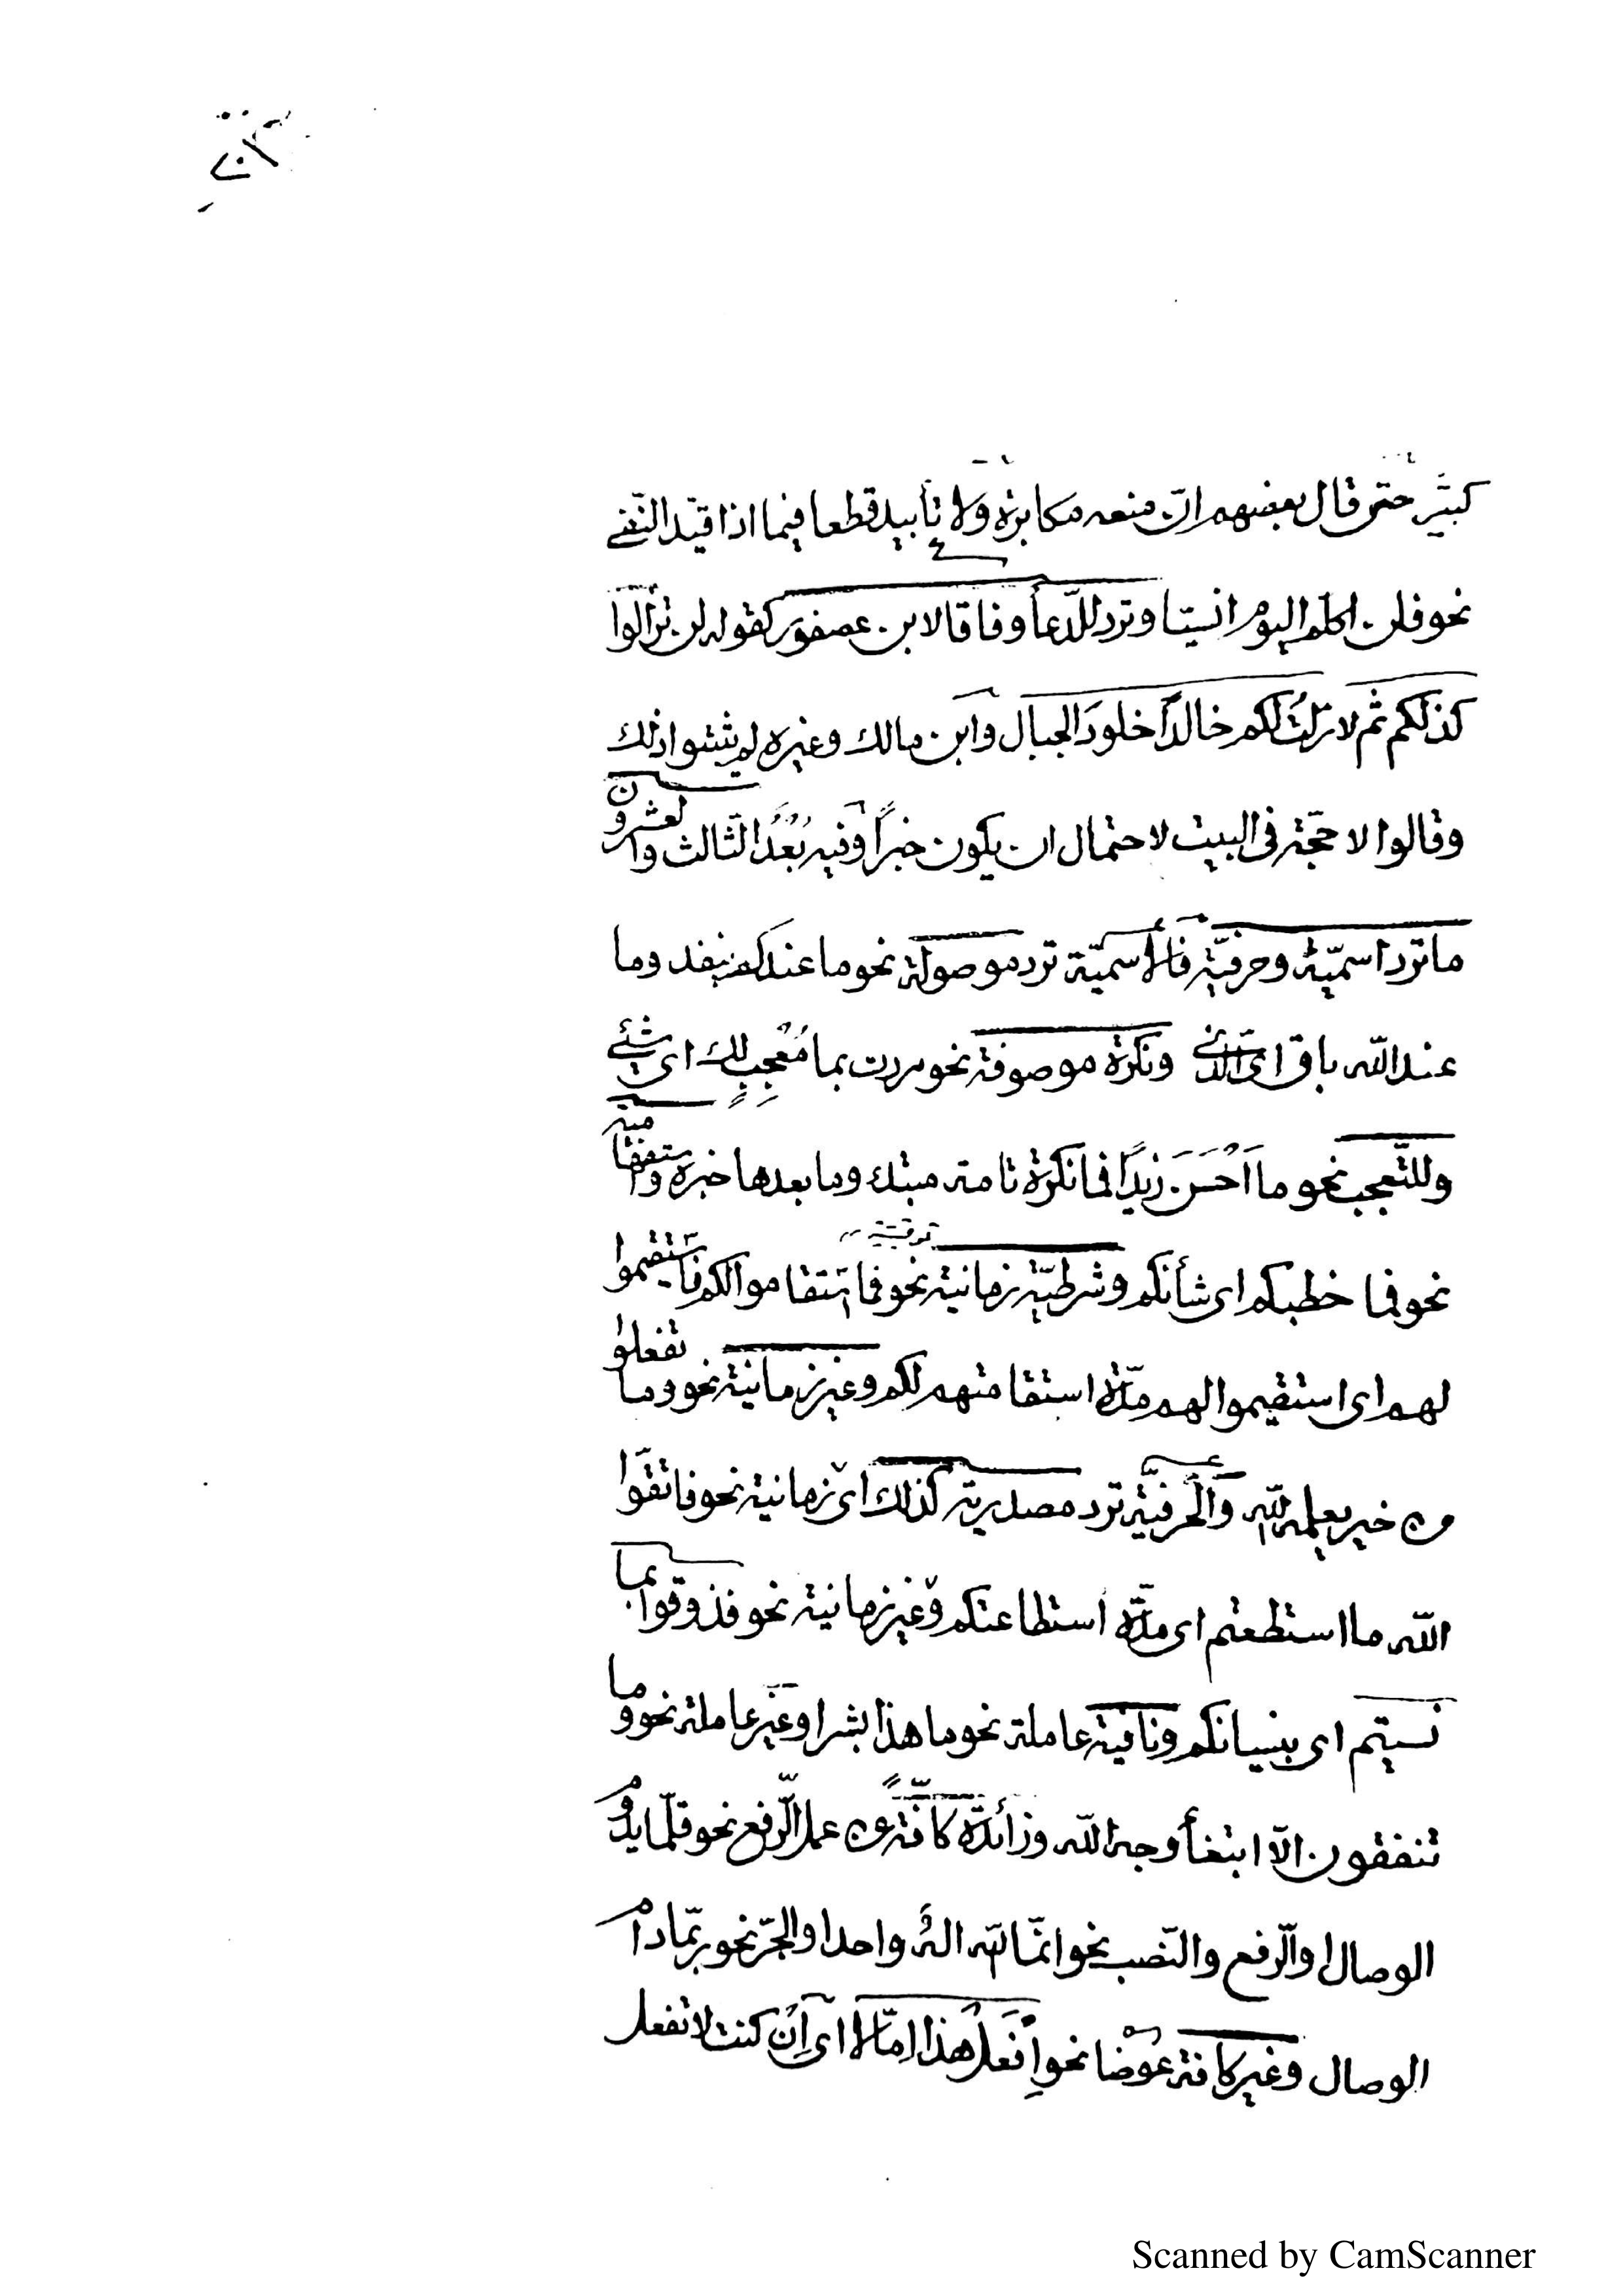 كثير حتى قال بعضهم انّ منعه مكابرة ولا تأبيد قطعا فيما اذا قيّد النّفى
نحو فلن اكلّم اليوم انسيّا وترد للدّعأ وفاقا لابن عصفور كقوله لن تزالوا
كذلكم ثم لا زلتُ لكم خالداً خلودَ الجبال وابن مالك وغيره لم يثبتوا ذلك
وقالوا لا حجّة فى البيت لاحتمال ان يكون خبراً وفيه بُعْدٌ الثّالث والعشرون
ما ترد اسميّة وحرفيّة فالأسميّة ترد موصولة نحو ما عندكم ينفد وما
عند الله باق اى الذى ونكرة موصوفة نحو مررت بما مُعْجِبٍ لك اى شئ
وللتّعجب نحو ما اَحْسَنَ زيدًا فما نكرة تامة مبتدأ وما بعدها خبره واستفهامية
نحو فما خطبكم اى شأنكم وشرطيّة زمانية نحو فما استقاموا لكم فاستقيموا
لهم اى استقيموا لهم مدّة استقامتهم لكم وغير زمانية نحو وما تفعلوا
من خير يعلمه الله والحرفيّة ترد مصدرية كذلك اى زمانية نحو فاتقوا
الله ما استطعتم اى مدّة استطاعتكم وغير زمانية نحو فذوقوا بما
نسيتم اى بنسيانكم ونافية عاملة نحو ما هذا بشرا وغير عاملة نحو وما
تنفقون الّا ابتغأ وجه الله وزائدة كافّة عن عمل الرّفع نحو قلّما يدوم
الوصال او الرّفع والنّصب نحو انّما الله الهٌ واحد او الجرّ نحو ربّما دام
الوصال وغير كافة عوضا نحو اِفْعَلْ هذا اِمّا لا اى اِن كنت لا تفعل
Scanned by CamScanner